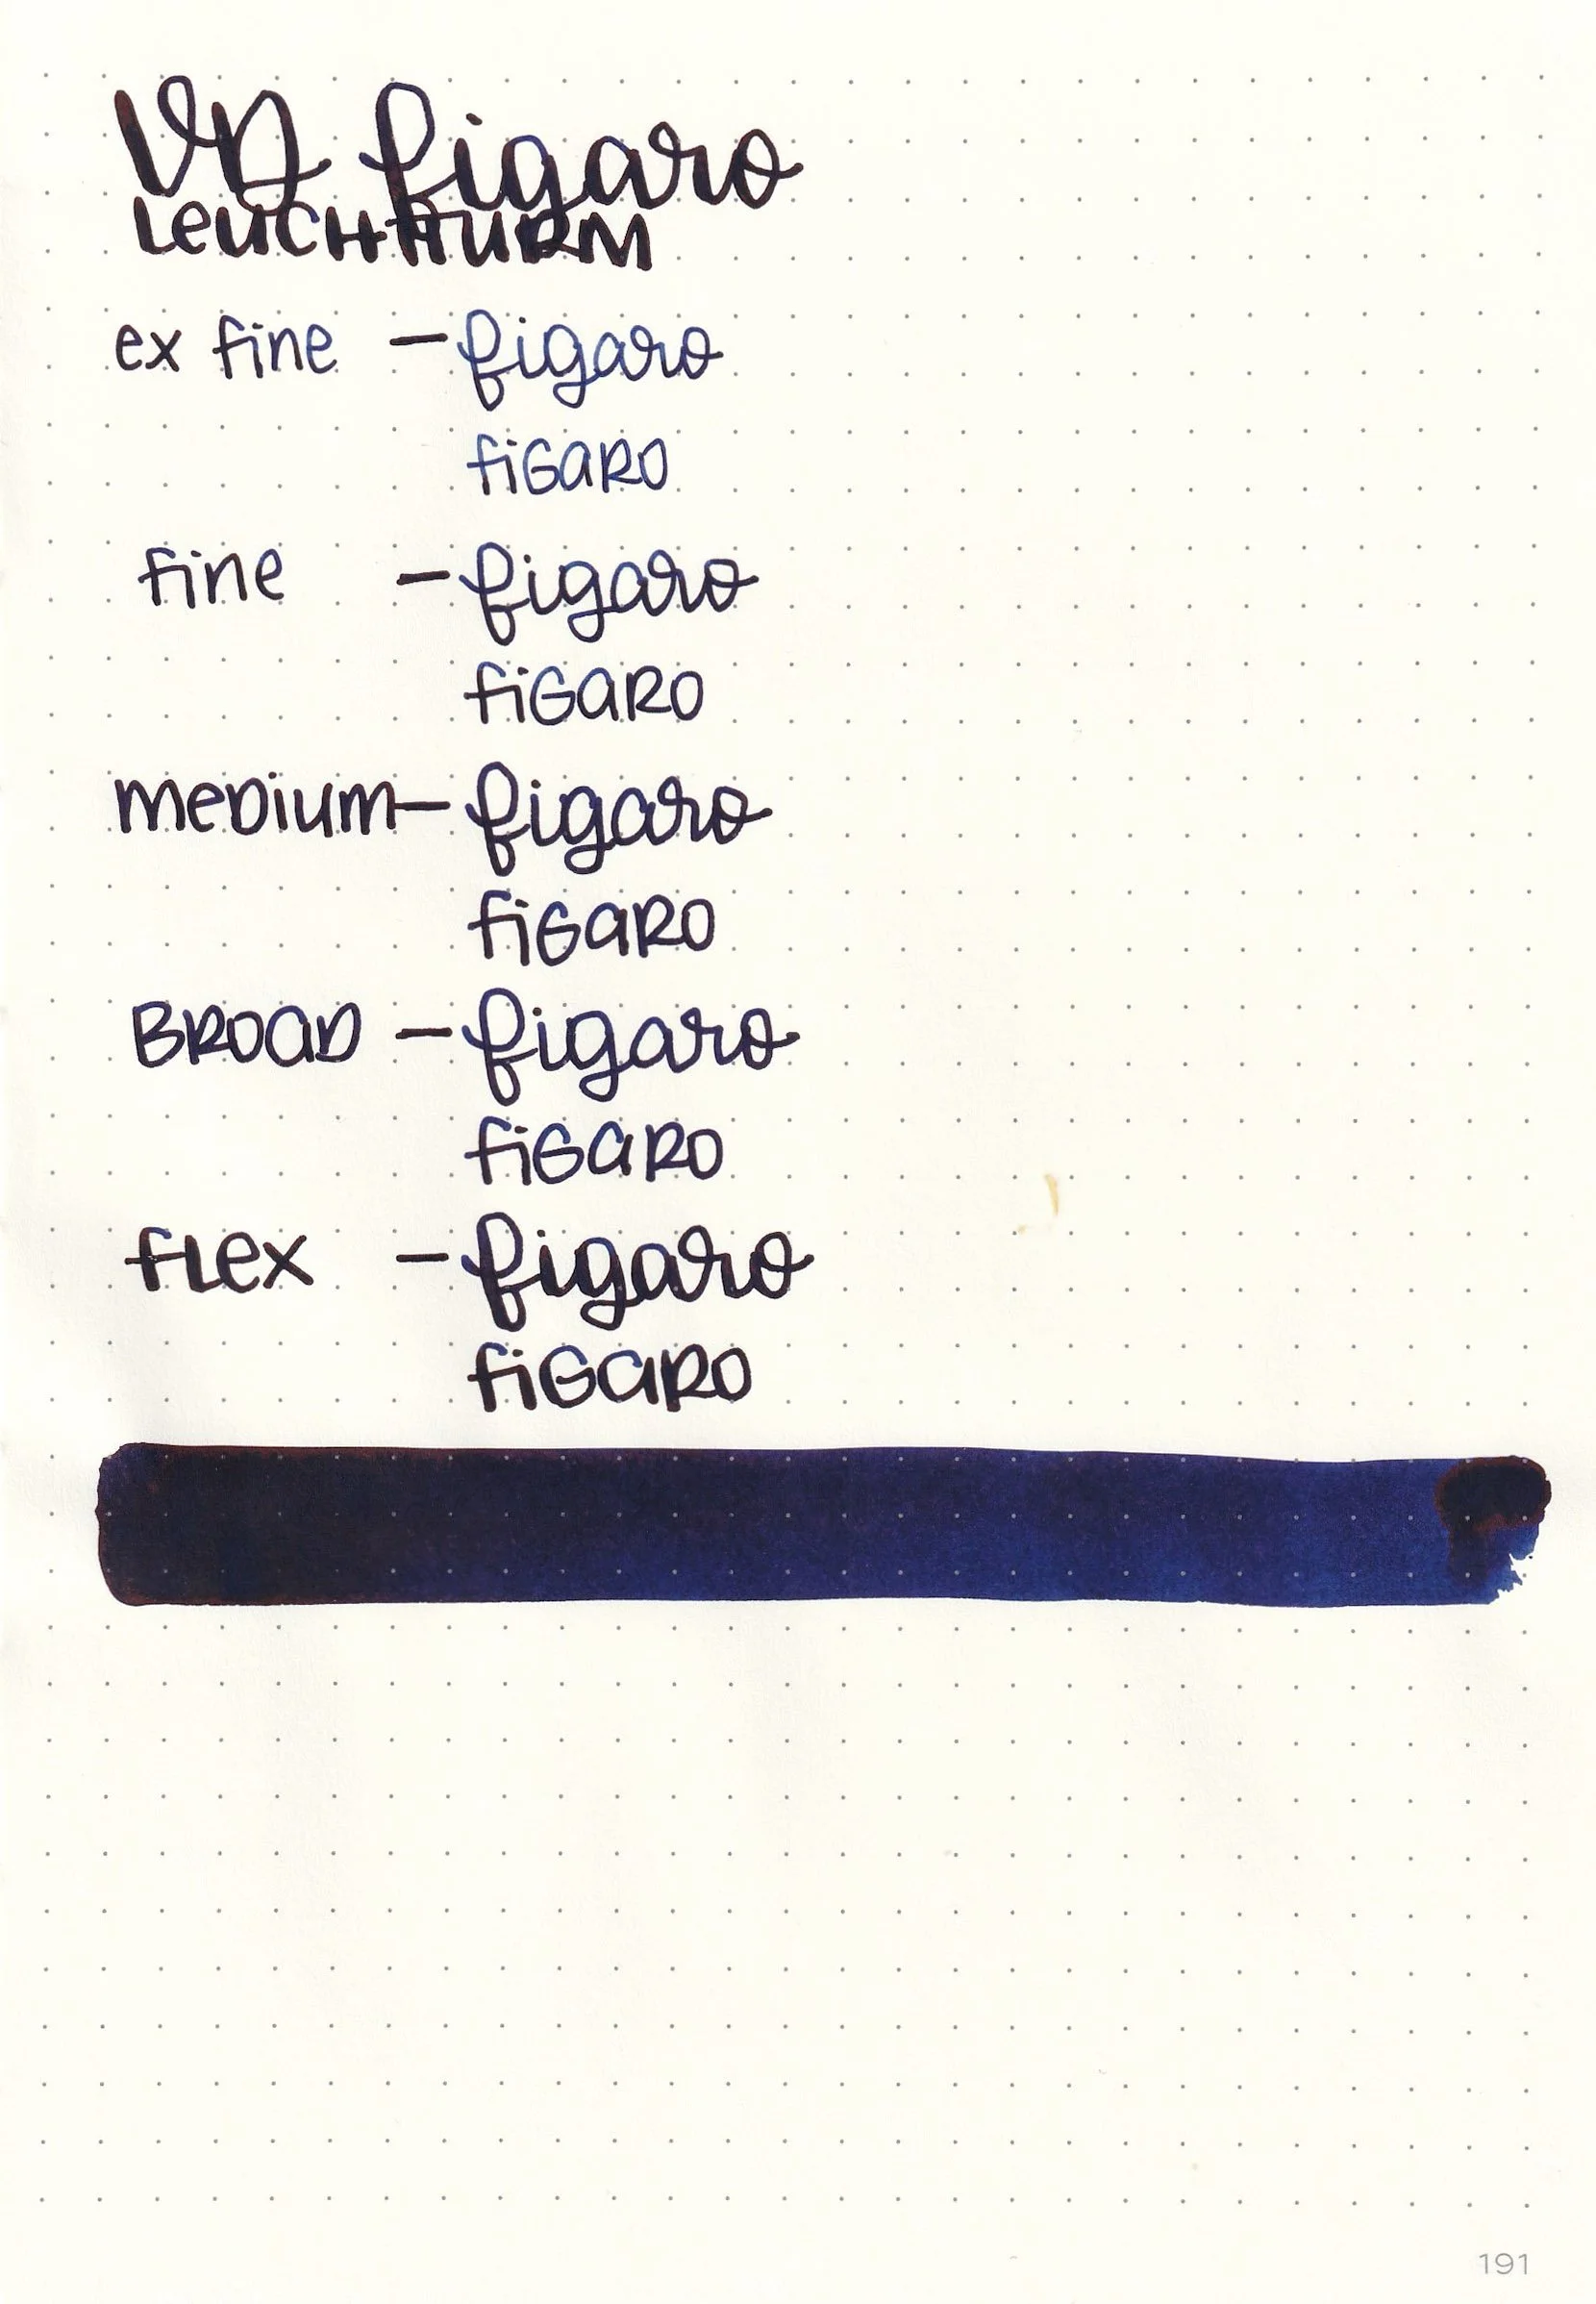 VD figaro
LEUCHTTURM
ex fine – figaro
figaro
fine – figaro
figaro
medium – figaro
figaro
BROAD – figaro
figaro
flex – figaro
figaro
191